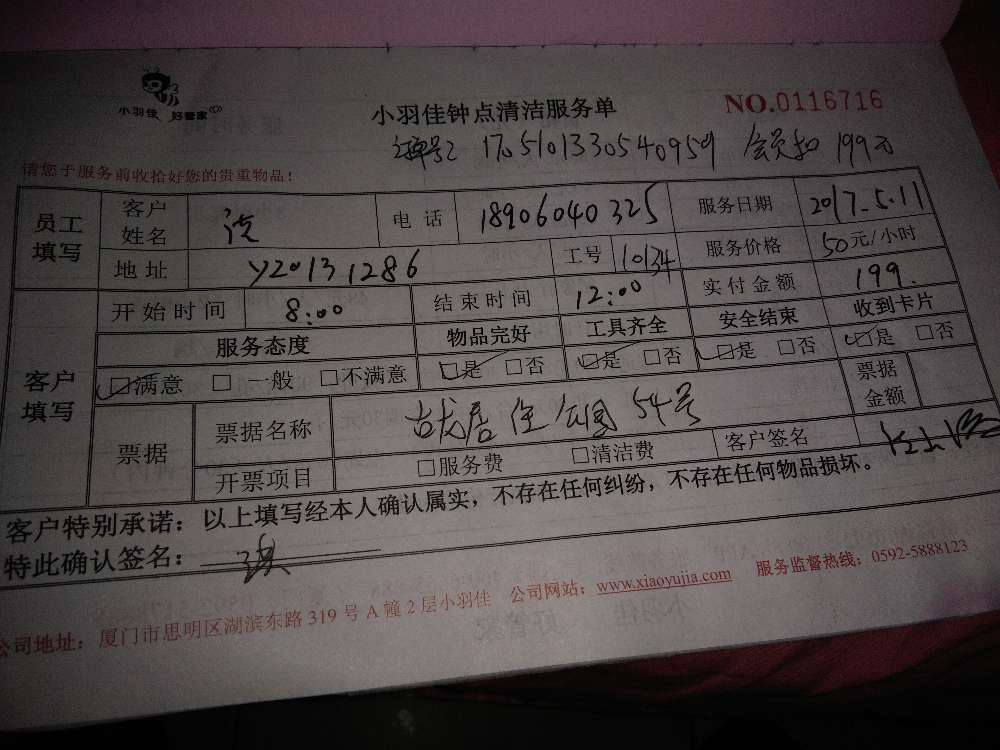 小羽佳 好管家
小羽佳钟点清洁服务单
NO.0116716
17051013305409509 会员扣 199元
请您于服务前收拾好您的贵重物品！
员工填写 客户姓名 电话 18906040325 服务日期 2017.5.11
地址 Y20131286 工号 10134 服务价格 50元/小时
客户填写 开始时间 8:00 结束时间 12:00 实付金额 199.
服务态度 物品完好 工具齐全 安全结束 收到卡片
☑满意 □一般 □不满意 ☑是 □否 ☑是 □否 ☑是 □否 ☑是 □否
票据 票据名称 古龙居住公园 54号 票据金额
开票项目 □服务费 □清洁费 客户签名
客户特别承诺：以上填写经本人确认属实，不存在任何纠纷，不存在任何物品损坏。
特此确认签名：
公司地址：厦门市思明区湖滨东路 319 号 A 幢 2 层小羽佳 公司网站：www.xiaoyujia.com 服务监督热线：0592-5888123